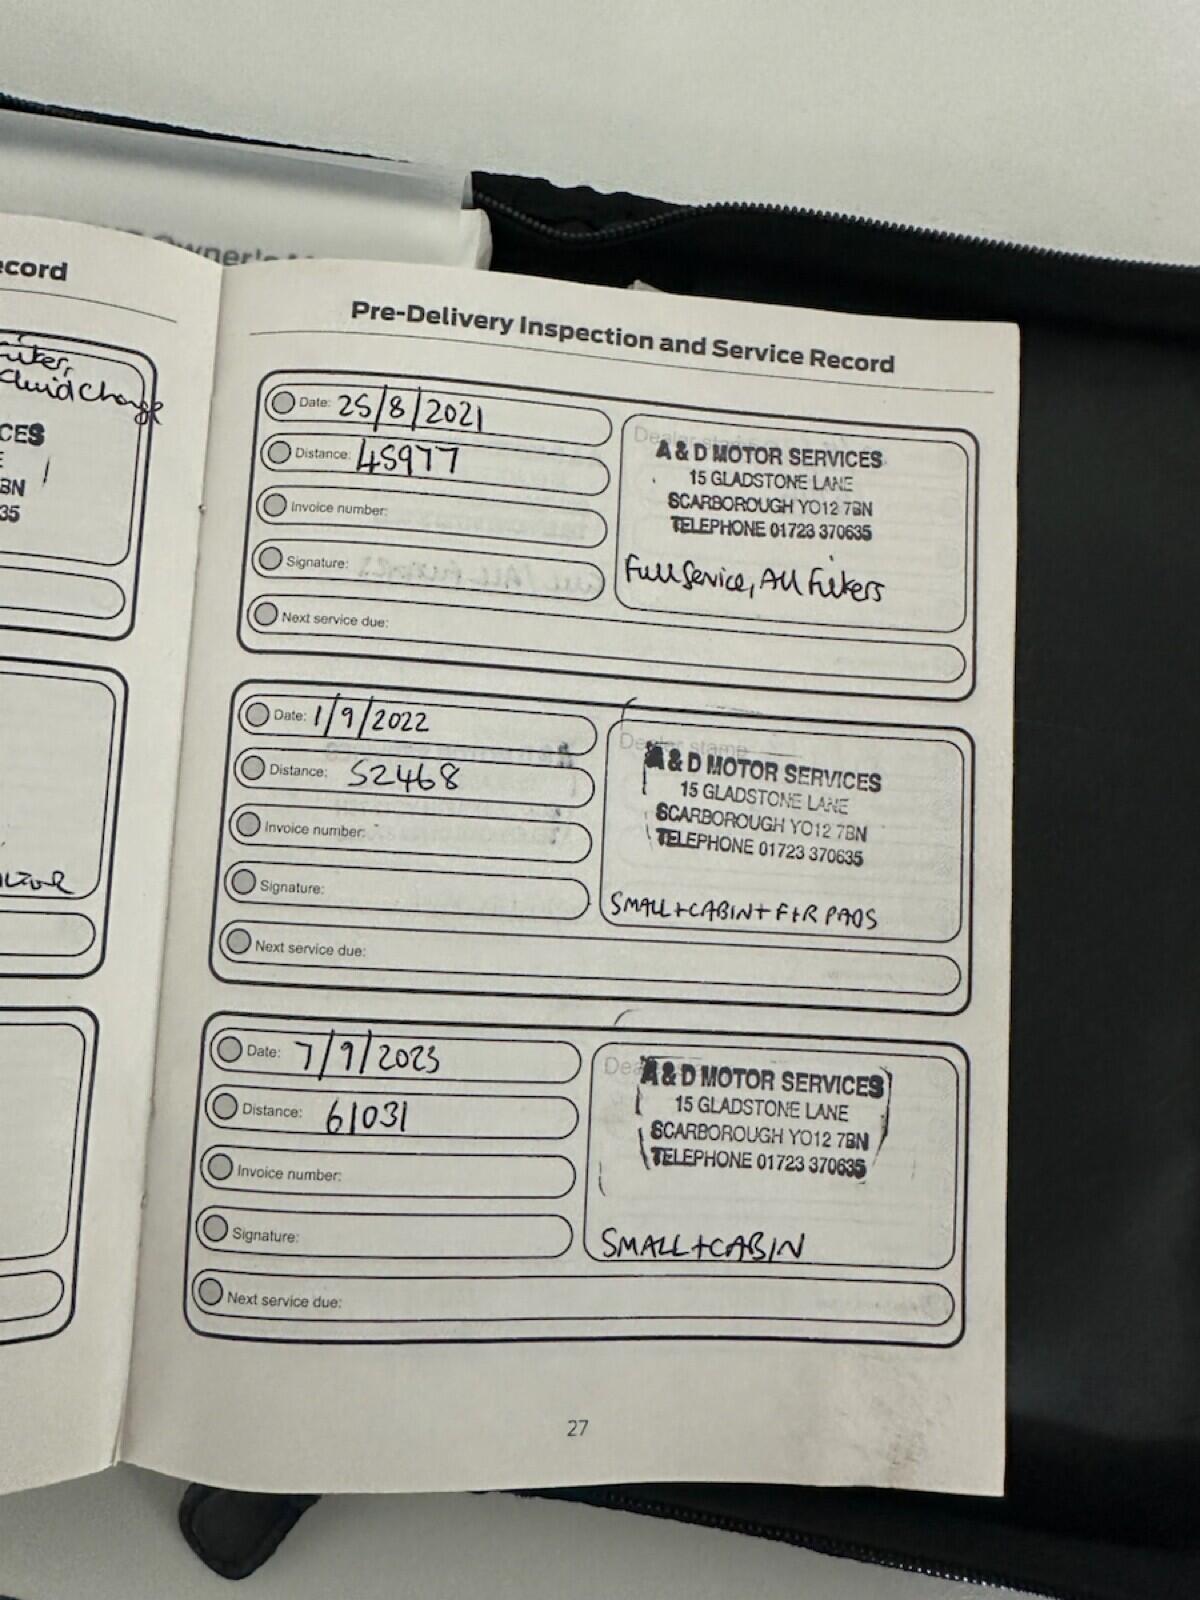 Owner's
ecord
Fluid Change
CES
BN
35
Pre-Delivery Inspection and Service Record
Date: 25/8/2021
Distance: 45977
Invoice number:
Signature:
Next service due:
Dealer stamp
A & D MOTOR SERVICES
15 GLADSTONE LANE
SCARBOROUGH YO12 7BN
TELEPHONE 01723 370635
Full Service, All Filters
Date: 1/9/2022
Distance: 52468
Invoice number:
Signature:
Next service due:
Dealer stamp
A & D MOTOR SERVICES
15 GLADSTONE LANE
SCARBOROUGH YO12 7BN
TELEPHONE 01723 370635
SMALL+CABIN+F+R PADS
Date: 7/9/2023
Distance: 61031
Invoice number:
Signature:
Next service due:
Dea
A & D MOTOR SERVICES
15 GLADSTONE LANE
SCARBOROUGH YO12 7BN
TELEPHONE 01723 370635
SMALL+CABIN
27